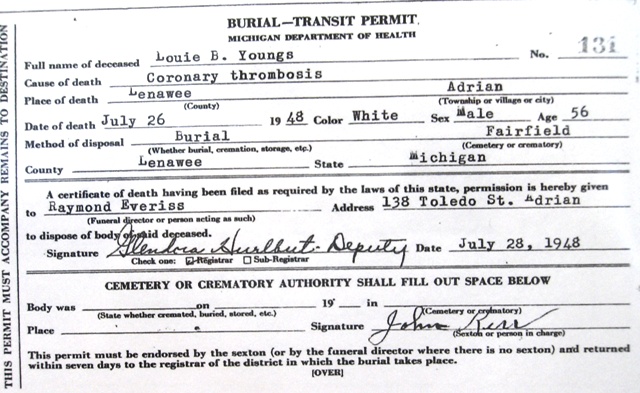 BURIAL—TRANSIT PERMIT
MICHIGAN DEPARTMENT OF HEALTH
Full name of deceased Louie B. Youngs No. 131
Cause of death Coronary thrombosis
Place of death Lenawee Adrian
(County) (Township or village or city)
Date of death July 26 1948 Color White Sex Male Age 56
Method of disposal Burial Fairfield
(Whether burial, cremation, storage, etc.) (Cemetery or crematory)
County Lenawee State Michigan
A certificate of death having been filed as required by the laws of this state, permission is hereby given
to Raymond Everiss Address 138 Toledo St. Adrian
(Funeral director or person acting as such)
to dispose of body of said deceased.
Signature Glendora Hurlbut - Deputy Date July 28, 1948
Check one: Registrar Sub-Registrar
CEMETERY OR CREMATORY AUTHORITY SHALL FILL OUT SPACE BELOW
Body was on 19 in
(State whether cremated, buried, stored, etc.) (Cemetery or crematory)
Place Signature John Kerr
(Sexton or person in charge)
This permit must be endorsed by the sexton (or by the funeral director where there is no sexton) and returned
within seven days to the registrar of the district in which the burial takes place.
[OVER]
THIS PERMIT MUST ACCOMPANY REMAINS TO DESTINATION